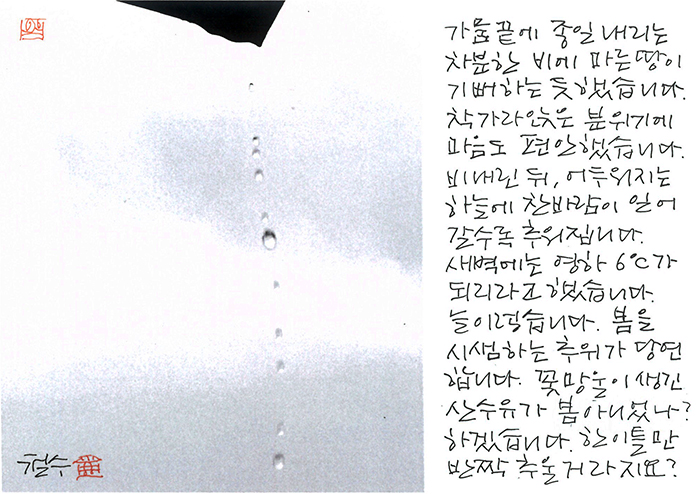 가뭄 끝에 종일 내리는
차분한 비에 마른 땅이
기뻐하는 듯 했습니다.
착 가라앉은 분위기에
마음도 편안했습니다.
비 내린 뒤, 어두워지는
하늘에 찬바람이 일어
갈수록 추워집니다.
새벽에는 영하 6℃가
되리라고 했습니다.
늘 이렇습니다. 봄을
시샘하는 추위가 당연
합니다. 꽃망울이 생긴
산수유가 봄 아니었나?
하겠습니다. 한 이틀만
반짝 추울 거라지요?
철수